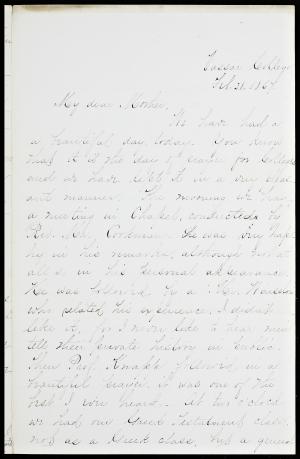 Vassar College
Feb. 21. 1867.
My dear Mother,
We have had a
a beautiful day today. You know
that it is the day of prayer for Colleges
and we have kept it in a very pleas
ant manner. This morning we had
a meeting in Chapel, conducted by
Rev. Mr. he was very happ
ily in his remarks, although not at
all so in his personal appearance.
He was followed by a Mr.
who related his experience, I did not
like it, for I never like to hear men
tell their private history in public.
Then Prof. Knapp followed in a
beautiful prayer. it was one of the
best I ever heard. At two o'clock
we had our Greek Testament class,
not as a Greek class, but a general